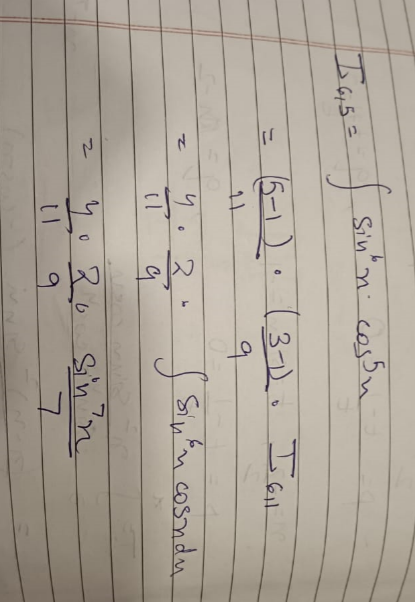 I6,5 = ∫ sin⁶x · cos⁵x
= (5-1)/11 · (3-1)/9 · I6,1
= 4/11 · 2/9 · ∫ sin⁶x cosx dx
= 4/11 · 2/9 · sin⁷x/7